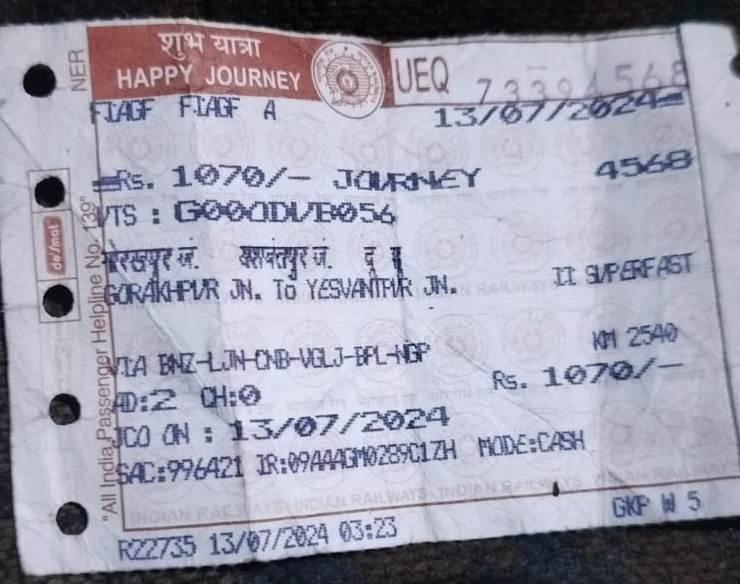 शुभ यात्रा
HAPPY JOURNEY
UEQ 73394568
NER
FIAGF FIAGF A 13/07/2024
Rs. 1070/- JOURNEY 4568
UTS : G000DUB056
गोरखपुर जं. यशवंतपुर जं. द्वि सु
GORAKHPUR JN. To YESVANTPUR JN. II SUPERFAST
VIA BNZ-LJN-CNB-VGLJ-BPL-NGP KM 2540
AD:2 CH:0 Rs. 1070/-
JCO ON : 13/07/2024
SAC:996421 IR:09AAAGM0289C1ZH MODE:CASH
R22735 13/07/2024 03:23 GKP W 5
"All India Passenger Helpline No. 139"
de/mat
INDIAN RAILWAYS INDIAN RAILWAYS INDIAN RAILWAYS